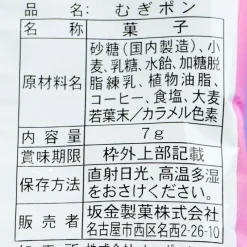 品名: むぎポン
名称 菓子
原材料名 砂糖(国内製造)、小
麦、乳糖、水飴、加糖脱
脂練乳、植物油脂、
コーヒー、食塩、大麦
若葉末/カラメル色素
内容量 7g
賞味期限 枠外上部記載
保存方法 直射日光、高温多湿
をおさけください。
販売者 坂金製菓株式会社
名古屋市西区名西2-26-10